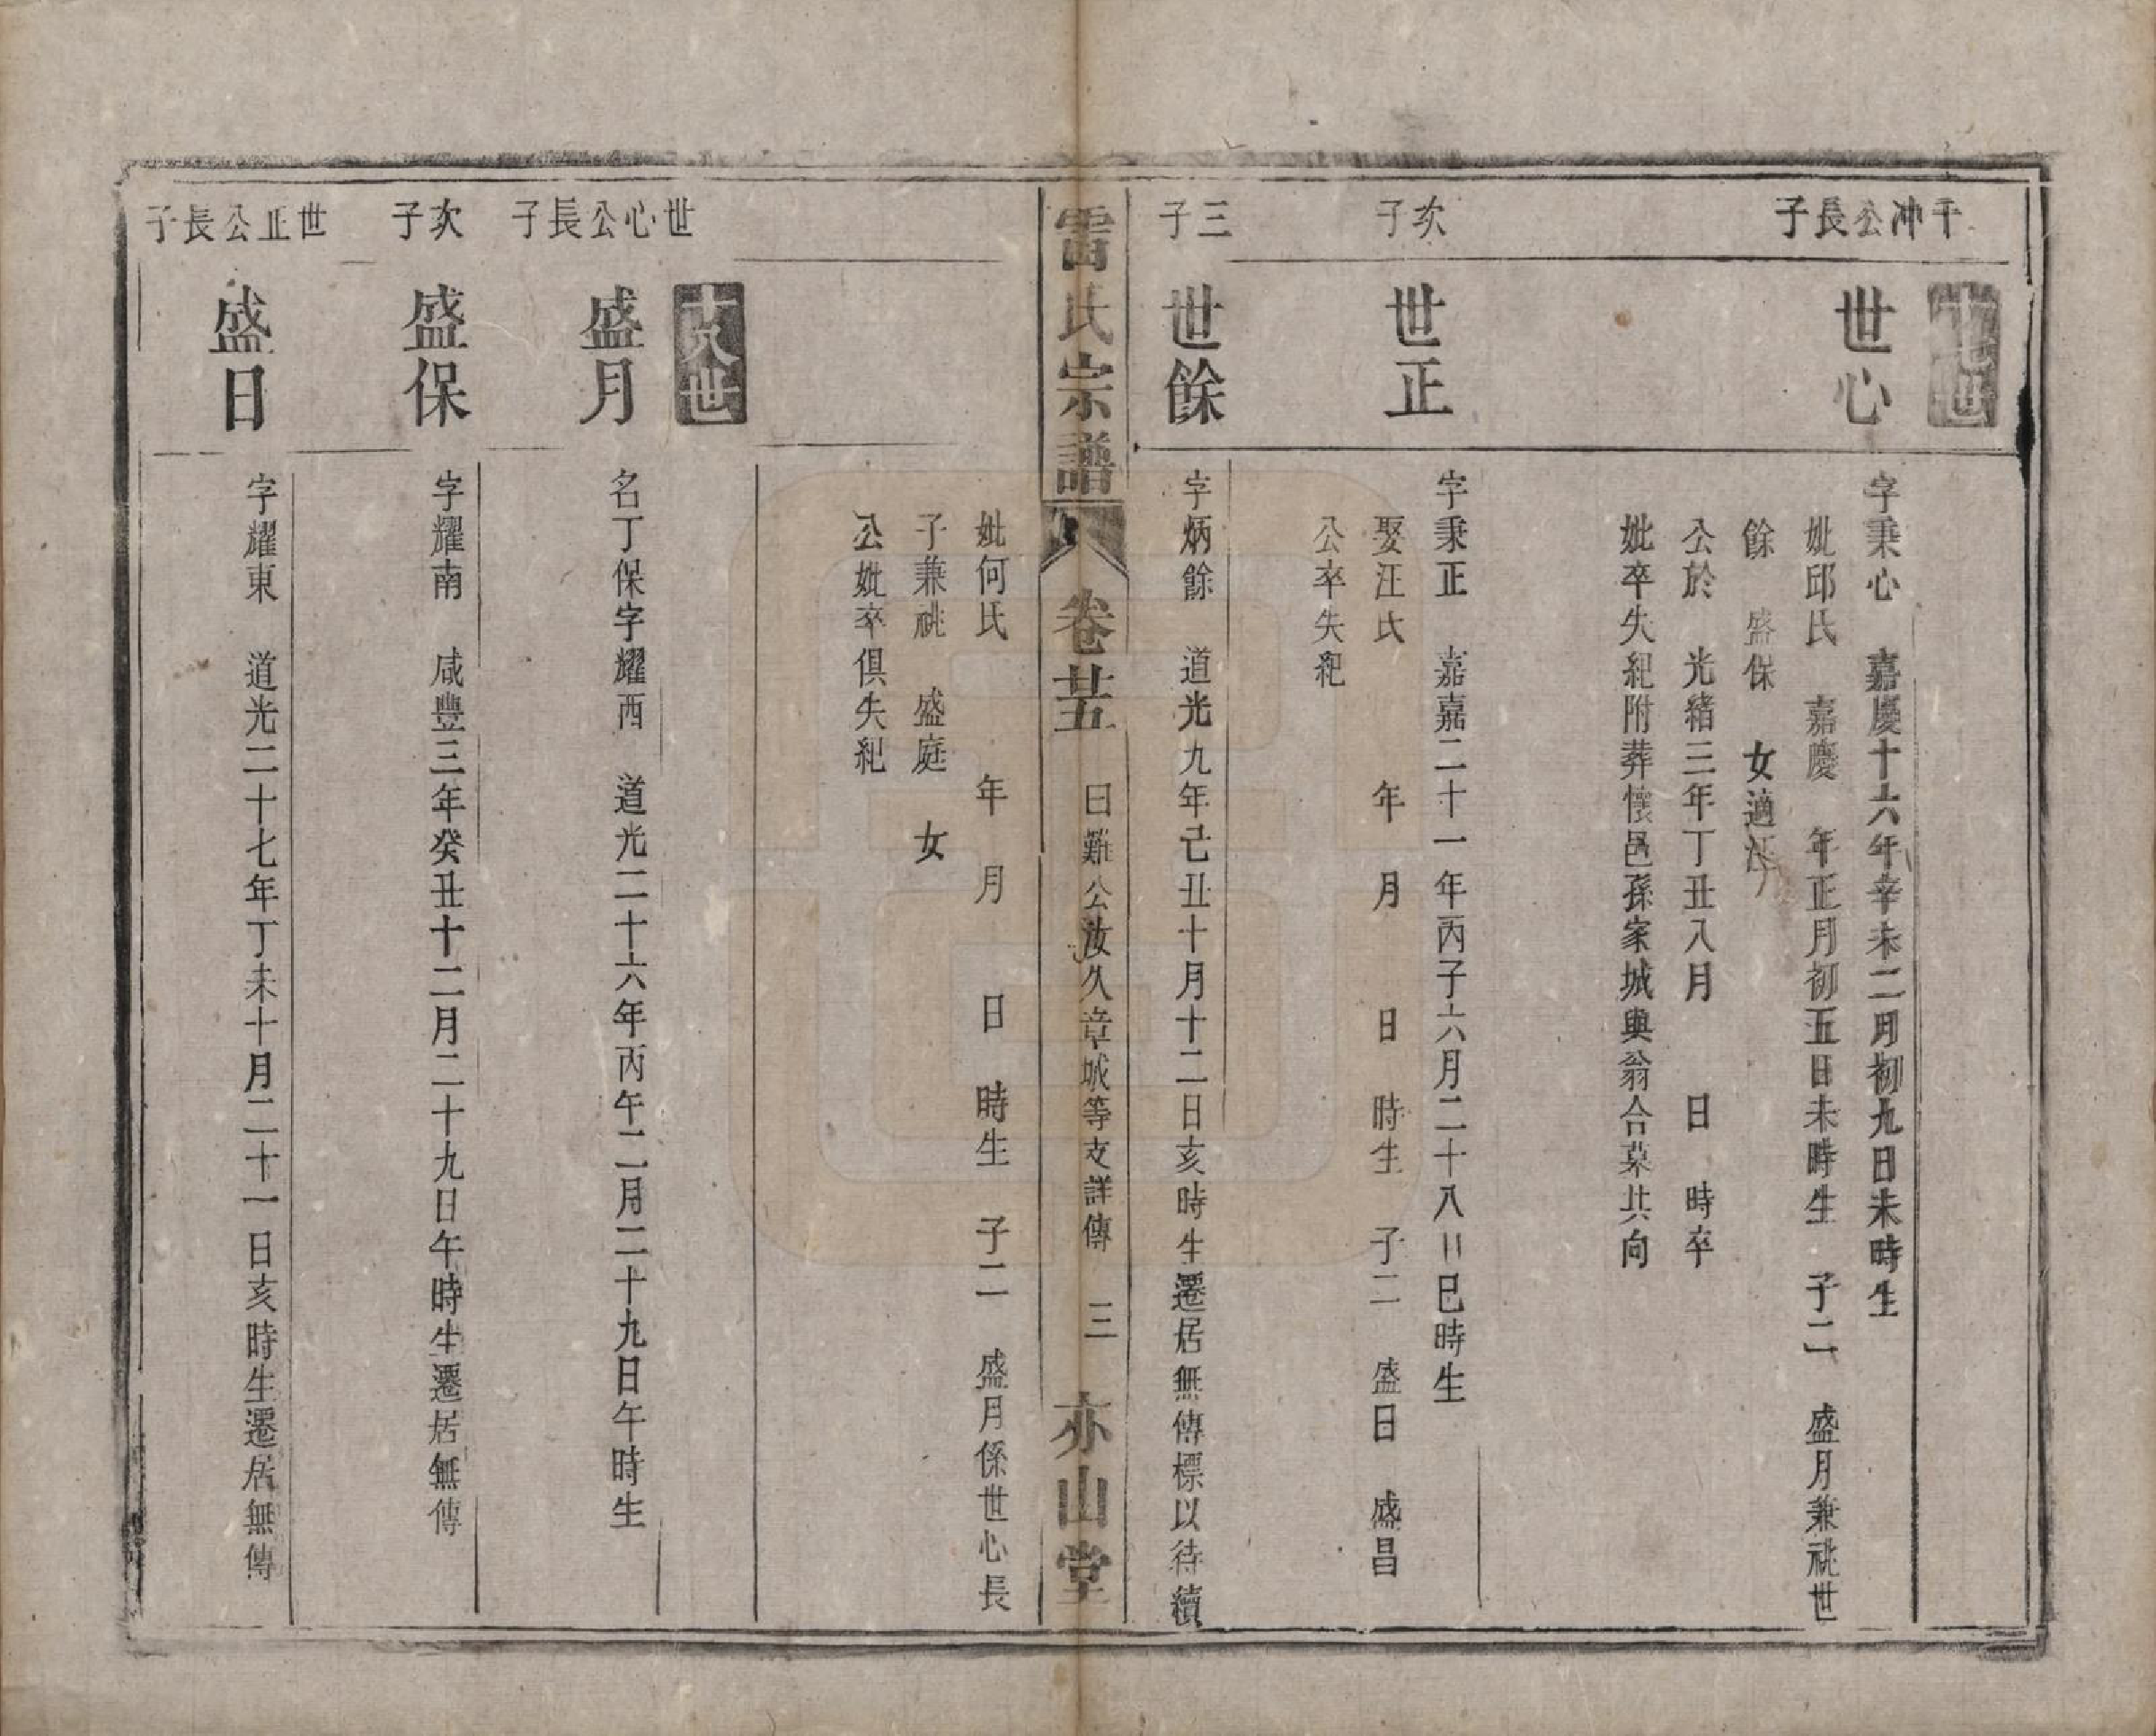 十七世
千冲公長子
世心
字秉心　嘉慶十六年辛未二月初九日未時生
妣邱氏　嘉慶　年正月初五日未時生　子二　盛月兼祧世
餘　盛保　女適汪
公於　光緒三年丁丑八月　日　時卒
妣卒失紀附葬懷邑孫家城與翁合菓共向
次子
世正
字秉正　嘉嘉二十一年丙子六月二十八日巳時生
娶汪氏　年　月　日　時生　子二　盛日　盛昌
公卒失紀
三子
世餘
字炳餘　道光九年己丑十月十二日亥時生遷居無傳標以待續
雷氏宗譜　卷廿五　曰難公汝久章城等支詳傳　三　亦山堂
妣何氏　年　月　日　時生　子二　盛月係世心長
子兼祧　盛庭　女
公妣卒俱失紀
十八世
世心公長子
盛月
名丁保字耀西　道光二十六年丙午二月二十九日午時生
次子
盛保
字耀南　咸豐三年癸丑十二月二十九日午時生遷居無傳
世正公長子
盛日
字耀東　道光二十七年丁未十月二十一日亥時生遷居無傳